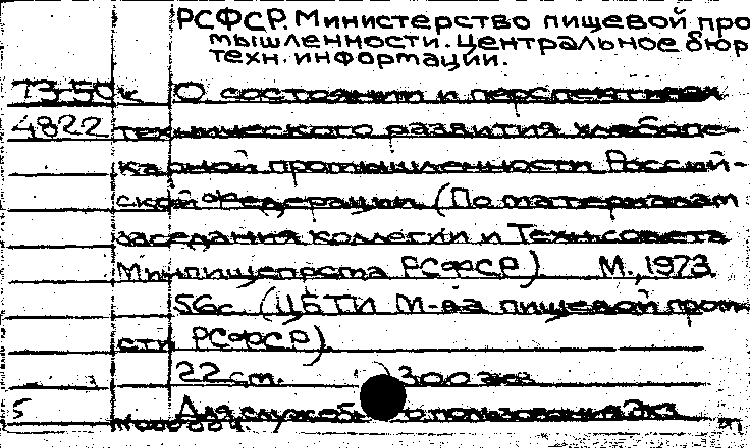 РСФСР. Министерство пищевой про
мышленности. Центральное бюр
техн. информации.
73-50к О состоянии и перспективах
4822 технического развития хлебопе-
карной промышленности Россий-
ской Федерации. (По материалам
заседания коллегии и Техн. совета
Минпищепрома РСФСР) М., 1973.
56с. (ЦБТИ М-ва пищевой пром
сти РСФСР).
22 см. 300 экз
5 Для служеб о пользования Экз